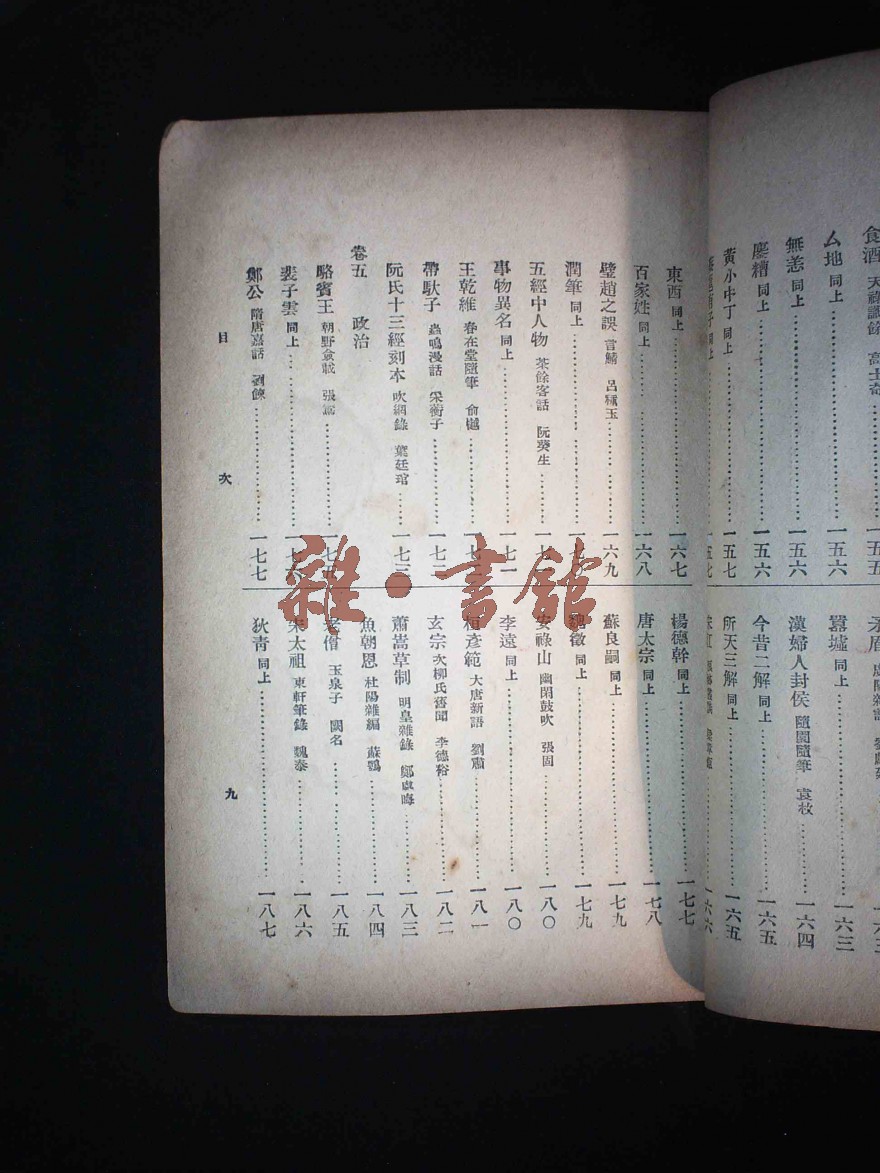 食酒 天祿識餘 高士奇 一五五
厶地 同上 一五六
無恙 同上 一五六
廖糟 同上 一五六
黃小中丁 同上 一五七
同上 一五七
矛盾 一六三
墨墟 同上 一六三
漢婦人封侯 隨園隨筆 袁枚 一六四
今昔二解 同上 一六五
所天三解 同上 一六五
一六六
東西 同上 一六七
百家姓 同上 一六八
璧趙之誤 言鯖 呂種玉 一六九
潤筆 同上
五經中人物 茶餘客話 阮葵生
事物異名 同上 一七一
王乾維 春在堂隨筆 俞樾
帶馱子 蟲鳴漫話 采蘅子 一七二
阮氏十三經刻本 吹網錄 葉廷琯 一七三
卷五 政治
駱賓王 朝野僉載 張鷟 一七五
裴子雲 同上 一七六
鄭公 隋唐嘉話 劉餗 一七七
楊德幹 同上 一七七
唐太宗 同上 一七八
蘇良嗣 同上 一七九
魏徵 同上 一七九
安祿山 幽閑鼓吹 張固 一八〇
李遠 同上 一八〇
桓彥範 大唐新語 劉肅 一八一
玄宗 次柳氏舊聞 李德裕 一八二
蕭嵩草制 明皇雜錄 鄭處晦 一八三
魚朝恩 杜陽雜編 蘇鶚 一八四
老僧 玉泉子 闕名 一八五
宋太祖 東軒筆錄 魏泰 一八六
狄青 同上 一八七
目次
九
雜·書館